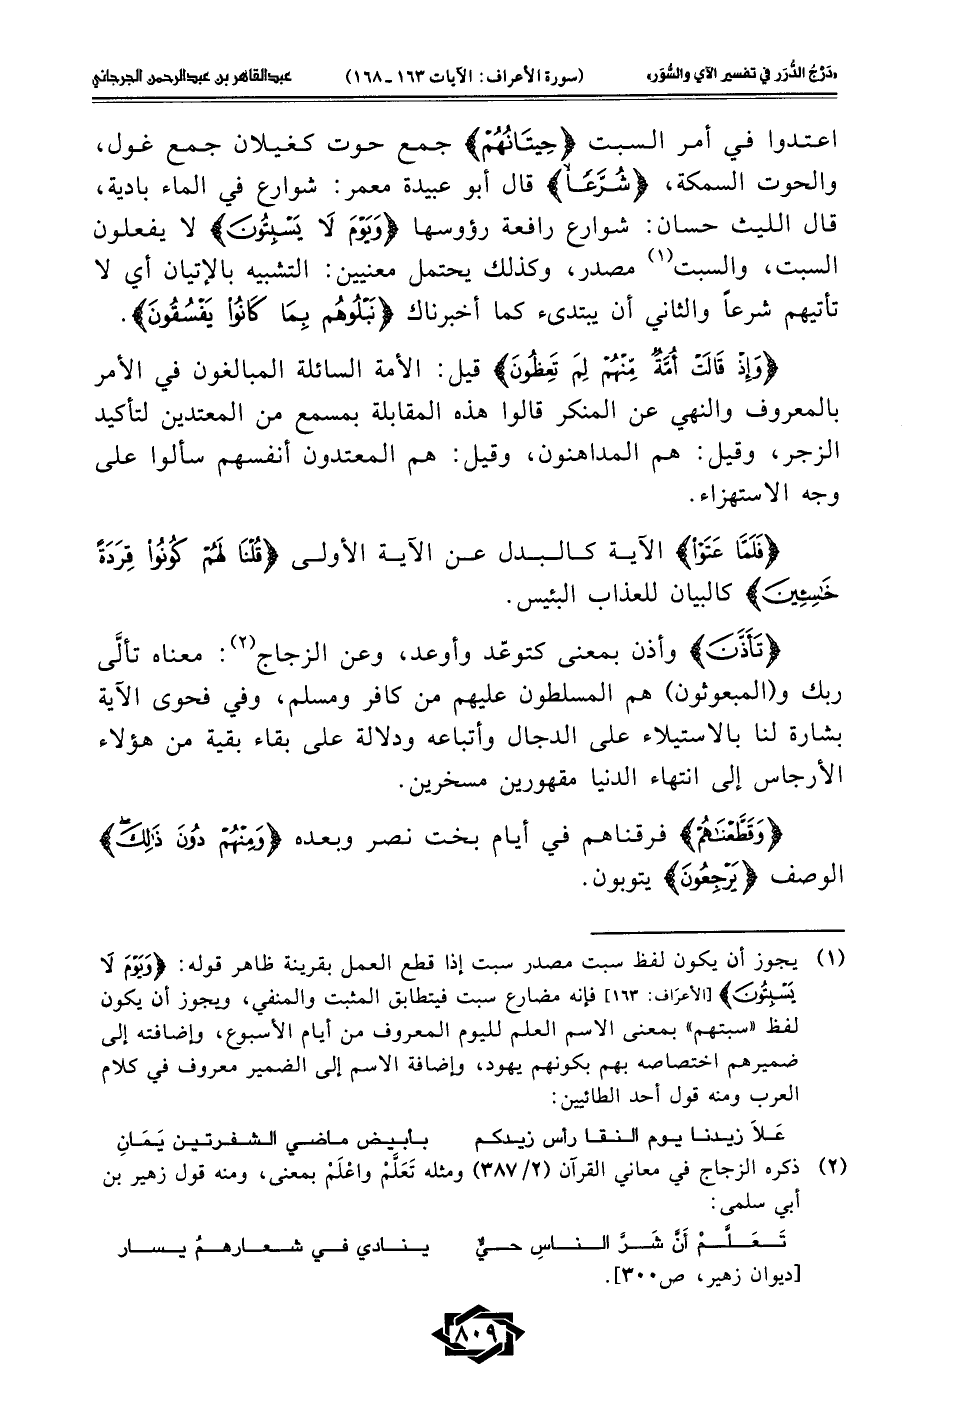 «دَرْجُ الدُّرَر في تفسير الآي والسُّوَر» (سورة الأعراف: الآيات ١٦٣ـ١٦٨) عبدالقاهر بن عبدالرحمن الجرجاني
اعتدوا في أمر السبت ﴿حِيتَانُهُمْ﴾ جمع حوت كغيلان جمع غول،
والحوت السمكة، ﴿شُرَّعًا﴾ قال أبو عبيدة معمر: شوارع في الماء بادية،
قال الليث حسان: شوارع رافعة رؤوسها ﴿وَيَوْمَ لَا يَسْبِتُونَ﴾ لا يفعلون
السبت، والسبت(١) مصدر، وكذلك يحتمل معنيين: التشبيه بالإتيان أي لا
تأتيهم شرعاً والثاني أن يبتدىء كما أخبرناك ﴿نَبْلُوهُم بِمَا كَانُوا يَفْسُقُونَ﴾.
﴿وَإِذْ قَالَتْ أُمَّةٌ مِّنْهُمْ لِمَ تَعِظُونَ﴾ قيل: الأمة السائلة المبالغون في الأمر
بالمعروف والنهي عن المنكر قالوا هذه المقابلة بمسمع من المعتدين لتأكيد
الزجر، وقيل: هم المداهنون، وقيل: هم المعتدون أنفسهم سألوا على
وجه الاستهزاء.
﴿فَلَمَّا عَتَوْا﴾ الآية كالبدل عن الآية الأولى ﴿قُلْنَا لَهُمْ كُونُوا قِرَدَةً
خَاسِئِينَ﴾ كالبيان للعذاب البئيس.
﴿تَأَذَّنَ﴾ وأذن بمعنى كتوعّد وأوعد، وعن الزجاج(٢): معناه تألَّى
ربك و(المبعوثون) هم المسلطون عليهم من كافر ومسلم، وفي فحوى الآية
بشارة لنا بالاستيلاء على الدجال وأتباعه ودلالة على بقاء بقية من هؤلاء
الأرجاس إلى انتهاء الدنيا مقهورين مسخرين.
﴿وَقَطَّعْنَاهُمْ﴾ فرقناهم في أيام بخت نصر وبعده ﴿وَمِنْهُمْ دُونَ ذَٰلِكَ﴾
الوصف ﴿يَرْجِعُونَ﴾ يتوبون.
(١) يجوز أن يكون لفظ سبت مصدر سبت إذا قطع العمل بقرينة ظاهر قوله: ﴿وَيَوْمَ لَا
يَسْبِتُونَ﴾ [الأعرَاف: ١٦٣] فإنه مضارع سبت فيتطابق المثبت والمنفي، ويجوز أن يكون
لفظ «سبتهم» بمعنى الاسم العلم لليوم المعروف من أيام الأسبوع، وإضافته إلى
ضميرهم اختصاصه بهم بكونهم يهود، وإضافة الاسم إلى الضمير معروف في كلام
العرب ومنه قول أحد الطائيين:
عَلاَ زيدنا يوم النقا رأس زيدكم بأبيض ماضي الشفرتين يَمَانِ
(٢) ذكره الزجاج في معاني القرآن (٣٨٧/٢) ومثله تَعَلَّمْ واعْلَمْ بمعنى، ومنه قول زهير بن
أبي سلمى:
تَعَلَّمْ أنَّ شَرَّ الناسِ حيٌّ ينادي في شعارهمُ يسار
[ديوان زهير، ص٣٠٠].
٨٠٩